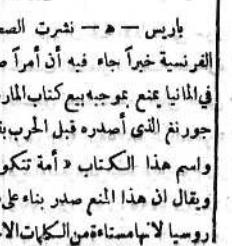 باريس — ه — نشرت الصح
الفرنسية خبراً جاء فيه أن أمراً ص
في المانيا يمنع بموجبه بيع كتاب المار
جورنغ الذي أصدره قبل الحرب بق
واسم هذا الكتاب « أمة تتكو
ويقال ان هذا المنع صدر بناء على
روسيا لانها مستاءة من الكلمات الا